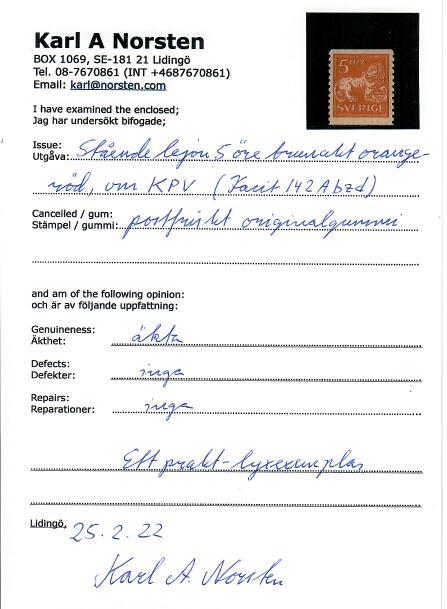 Karl A Norsten
BOX 1069, SE-181 21 Lidingö
Tel. 08-7670861 (INT +4687670861)
Email: karl@norsten.com
5 ÖRE
SVERIGE
I have examined the enclosed;
Jag har undersökt bifogade;
Issue:
Utgåva: Stående lejon 5 öre brunakt orange-
röd, vm KPV (Facit 142Abzd)
Cancelled / gum:
Stämpel / gummi: postfriskt originalgummi
and am of the following opinion:
och är av följande uppfattning:
Genuineness:
Äkthet: äkta
Defects:
Defekter: inga
Repairs:
Reparationer: inga
Ett prakt-lyxexemplar
Lidingö, 25.2.22
Karl A. Norsten